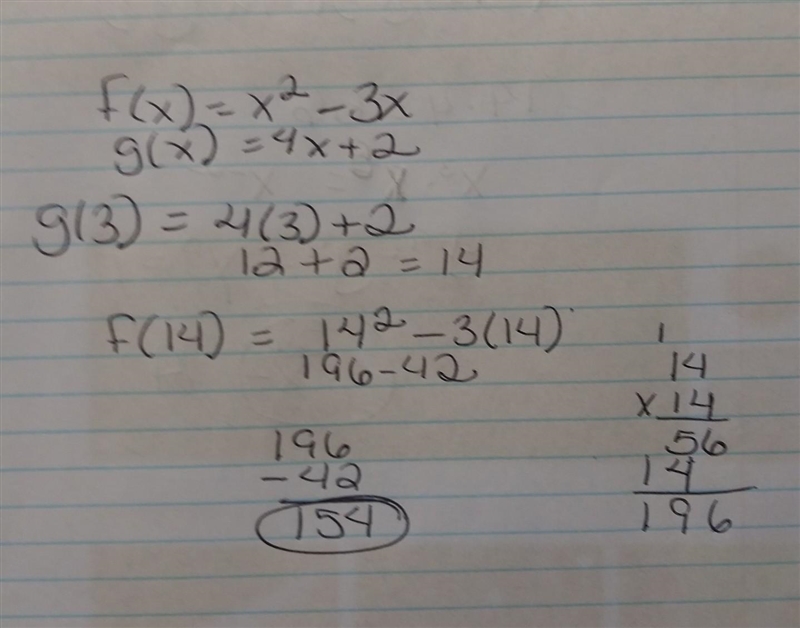 f(x) = x² - 3x
g(x) = 4x + 2
g(3) = 4(3) + 2
12 + 2 = 14
f(14) = 14² - 3(14)
196 - 42
196
- 42
154
1
14
x 14
56
14
196